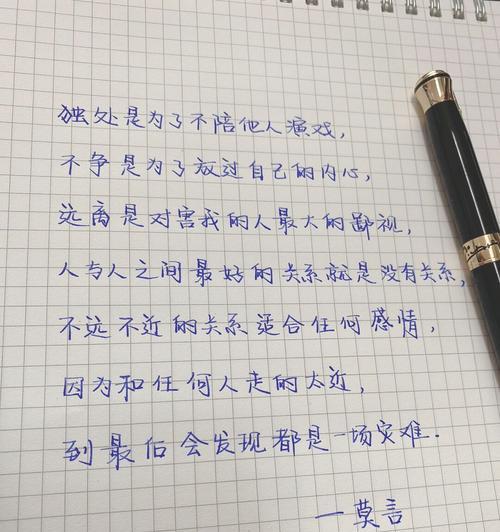 独处是为了不陪他人演戏,
不争是为了放过自己的内心,
远离是对害我的人最大的鄙视,
人与人之间最好的关系就是没有关系,
不远不近的关系适合任何感情,
因为和任何人走的太近,
到最后会发现都是一场灾难.
—莫言